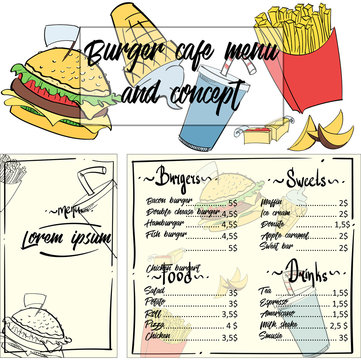 Burger cafe menu
and concept
~Menu~
Lorem ipsum
~Burgers~
Bacon burger 5$
Double chease burger 4,5$
Hamburger 4,5$
Fish burger 5$
Chicken burger 5$
~Food~
Salad 3$
Potato 3$
Roll 3,5$
Pizza 4 $
Chicken 3,5$
~Sweets~
Muffin 2$
Ice cream 2$
Donuts 1,5$
Apple caramel 2,5$
Sweet bar 2$
~Drinks~
Tea 1,5$
Espresso 1,5$
Americano 1,5$
Milk shake 2,5 $
Smusie 3$